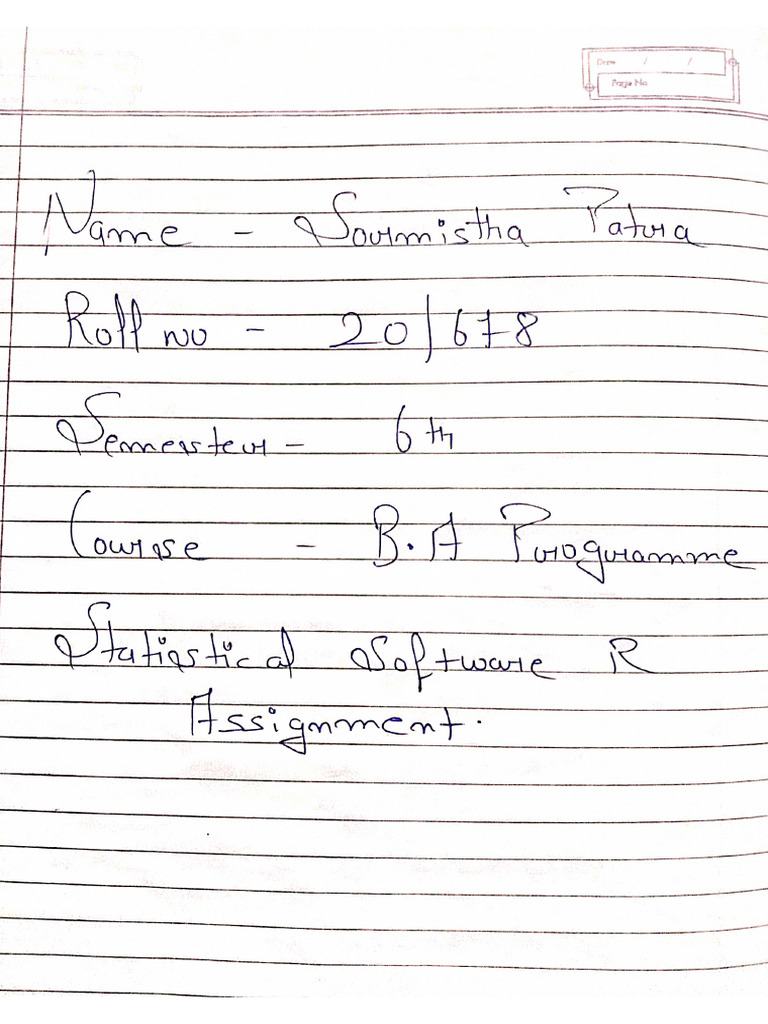 Date / /
Page No
Name - Sourmistha Patra
Roll no - 20/678
Semester - 6th
Course - B.A Programme
Statistical Software R
Assignment.